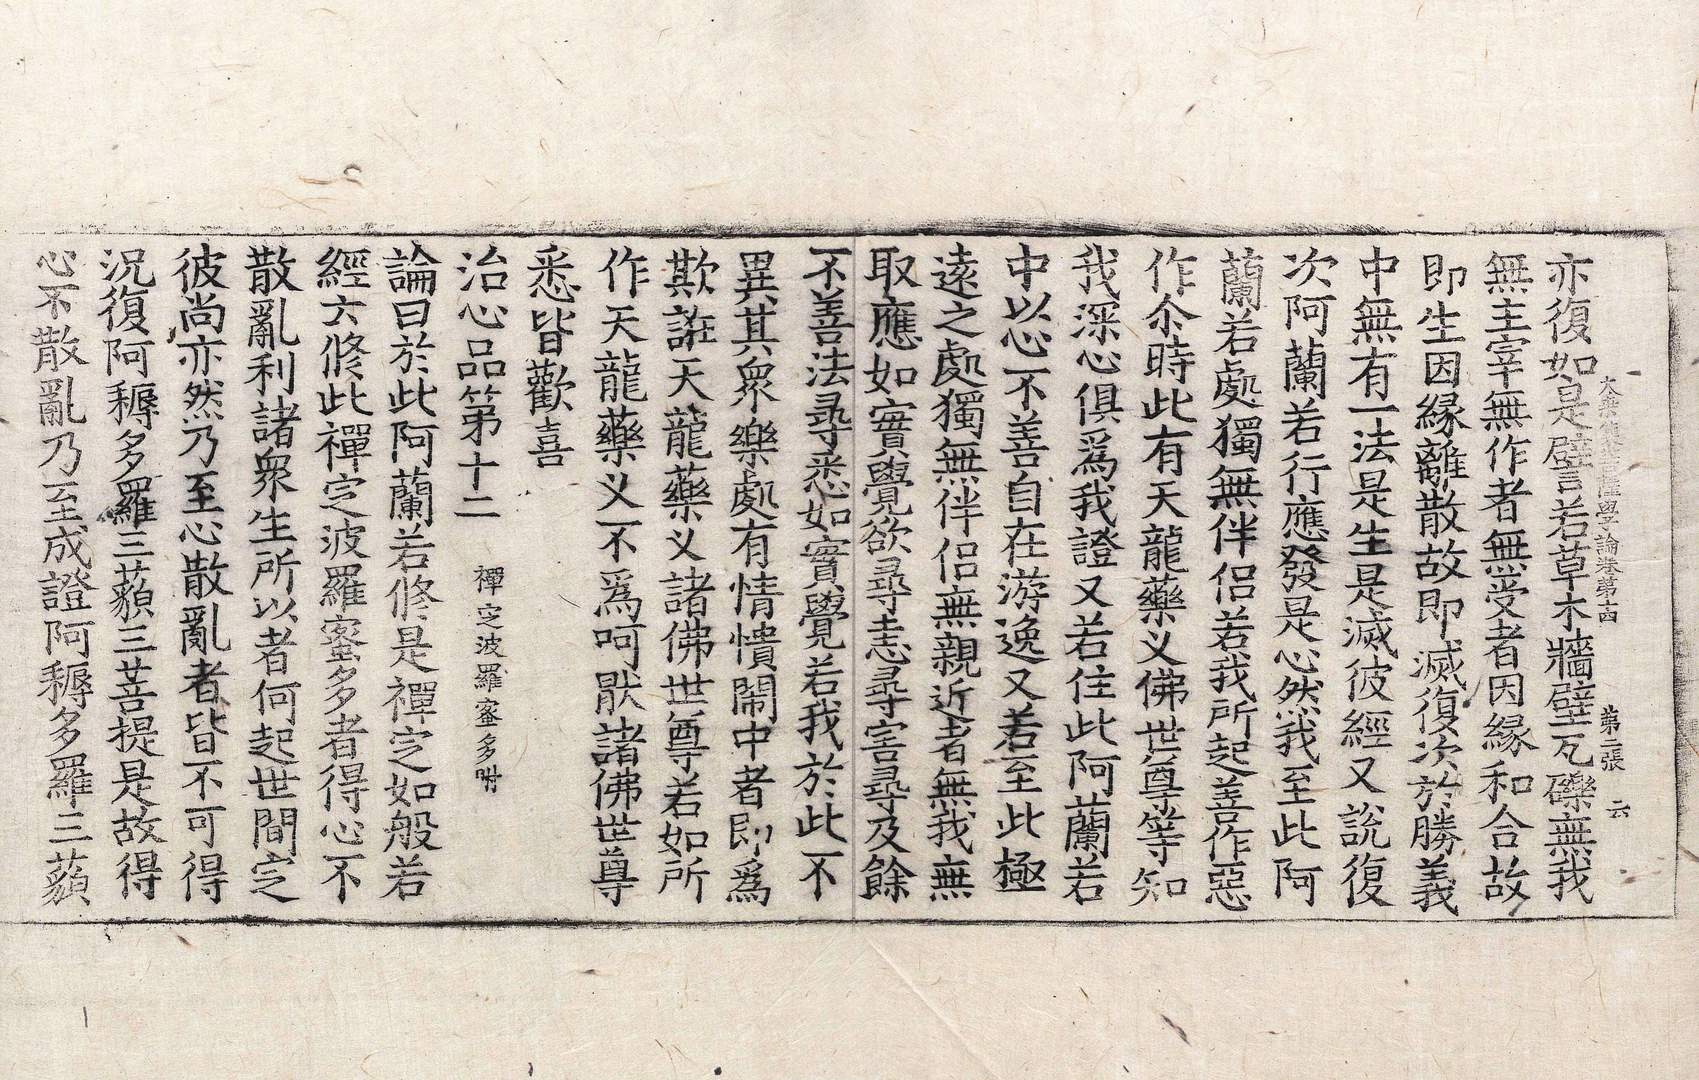 大乘集菩薩學論卷第十四 第二張 云
亦復如是譬若草木牆壁瓦礫無我
無主宰無作者無受者因緣和合故
即生因緣離散故即滅復次於勝義
中無有一法是生是滅彼經又說復
次阿蘭若行應發是心然我至此阿
蘭若處獨無伴侶若我所起善作惡
作尒時此有天龍藥叉佛世尊等知
我深心俱爲我證又若住此阿蘭若
中以心不善自在游逸又若至此極
遠之處獨無伴侶無親近者無我無
取應如實覺欲尋恚尋害尋及餘
不善法尋悉如實覺若我於此不
異其衆樂處有情憒閙中者即爲
欺誑天龍藥叉諸佛世尊若如所
作天龍藥叉不爲呵猒諸佛世尊
悉皆歡喜
治心品第十二 禪定波羅蜜多附
論曰於此阿蘭若修是禪定如般若
經云修此禪定波羅蜜多者得心不
散亂利諸衆生所以者何起世間定
彼尚亦然乃至心散亂者皆不可得
況復阿耨多羅三藐三菩提是故得
心不散亂乃至成證阿耨多羅三藐